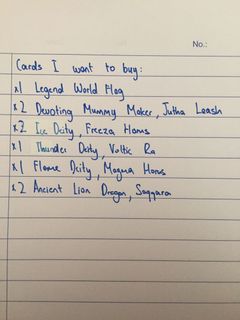 No.:
Cards I want to buy:
x1 Legend World Flag
x2 Devoting Mummy Maker, Jutha Leash
x2 Ice Deity, Freeza Horus
x1 Thunder Deity, Voltic Ra
x1 Flame Deity, Magma Horus
x2 Ancient Lion Dragon, Saqqara